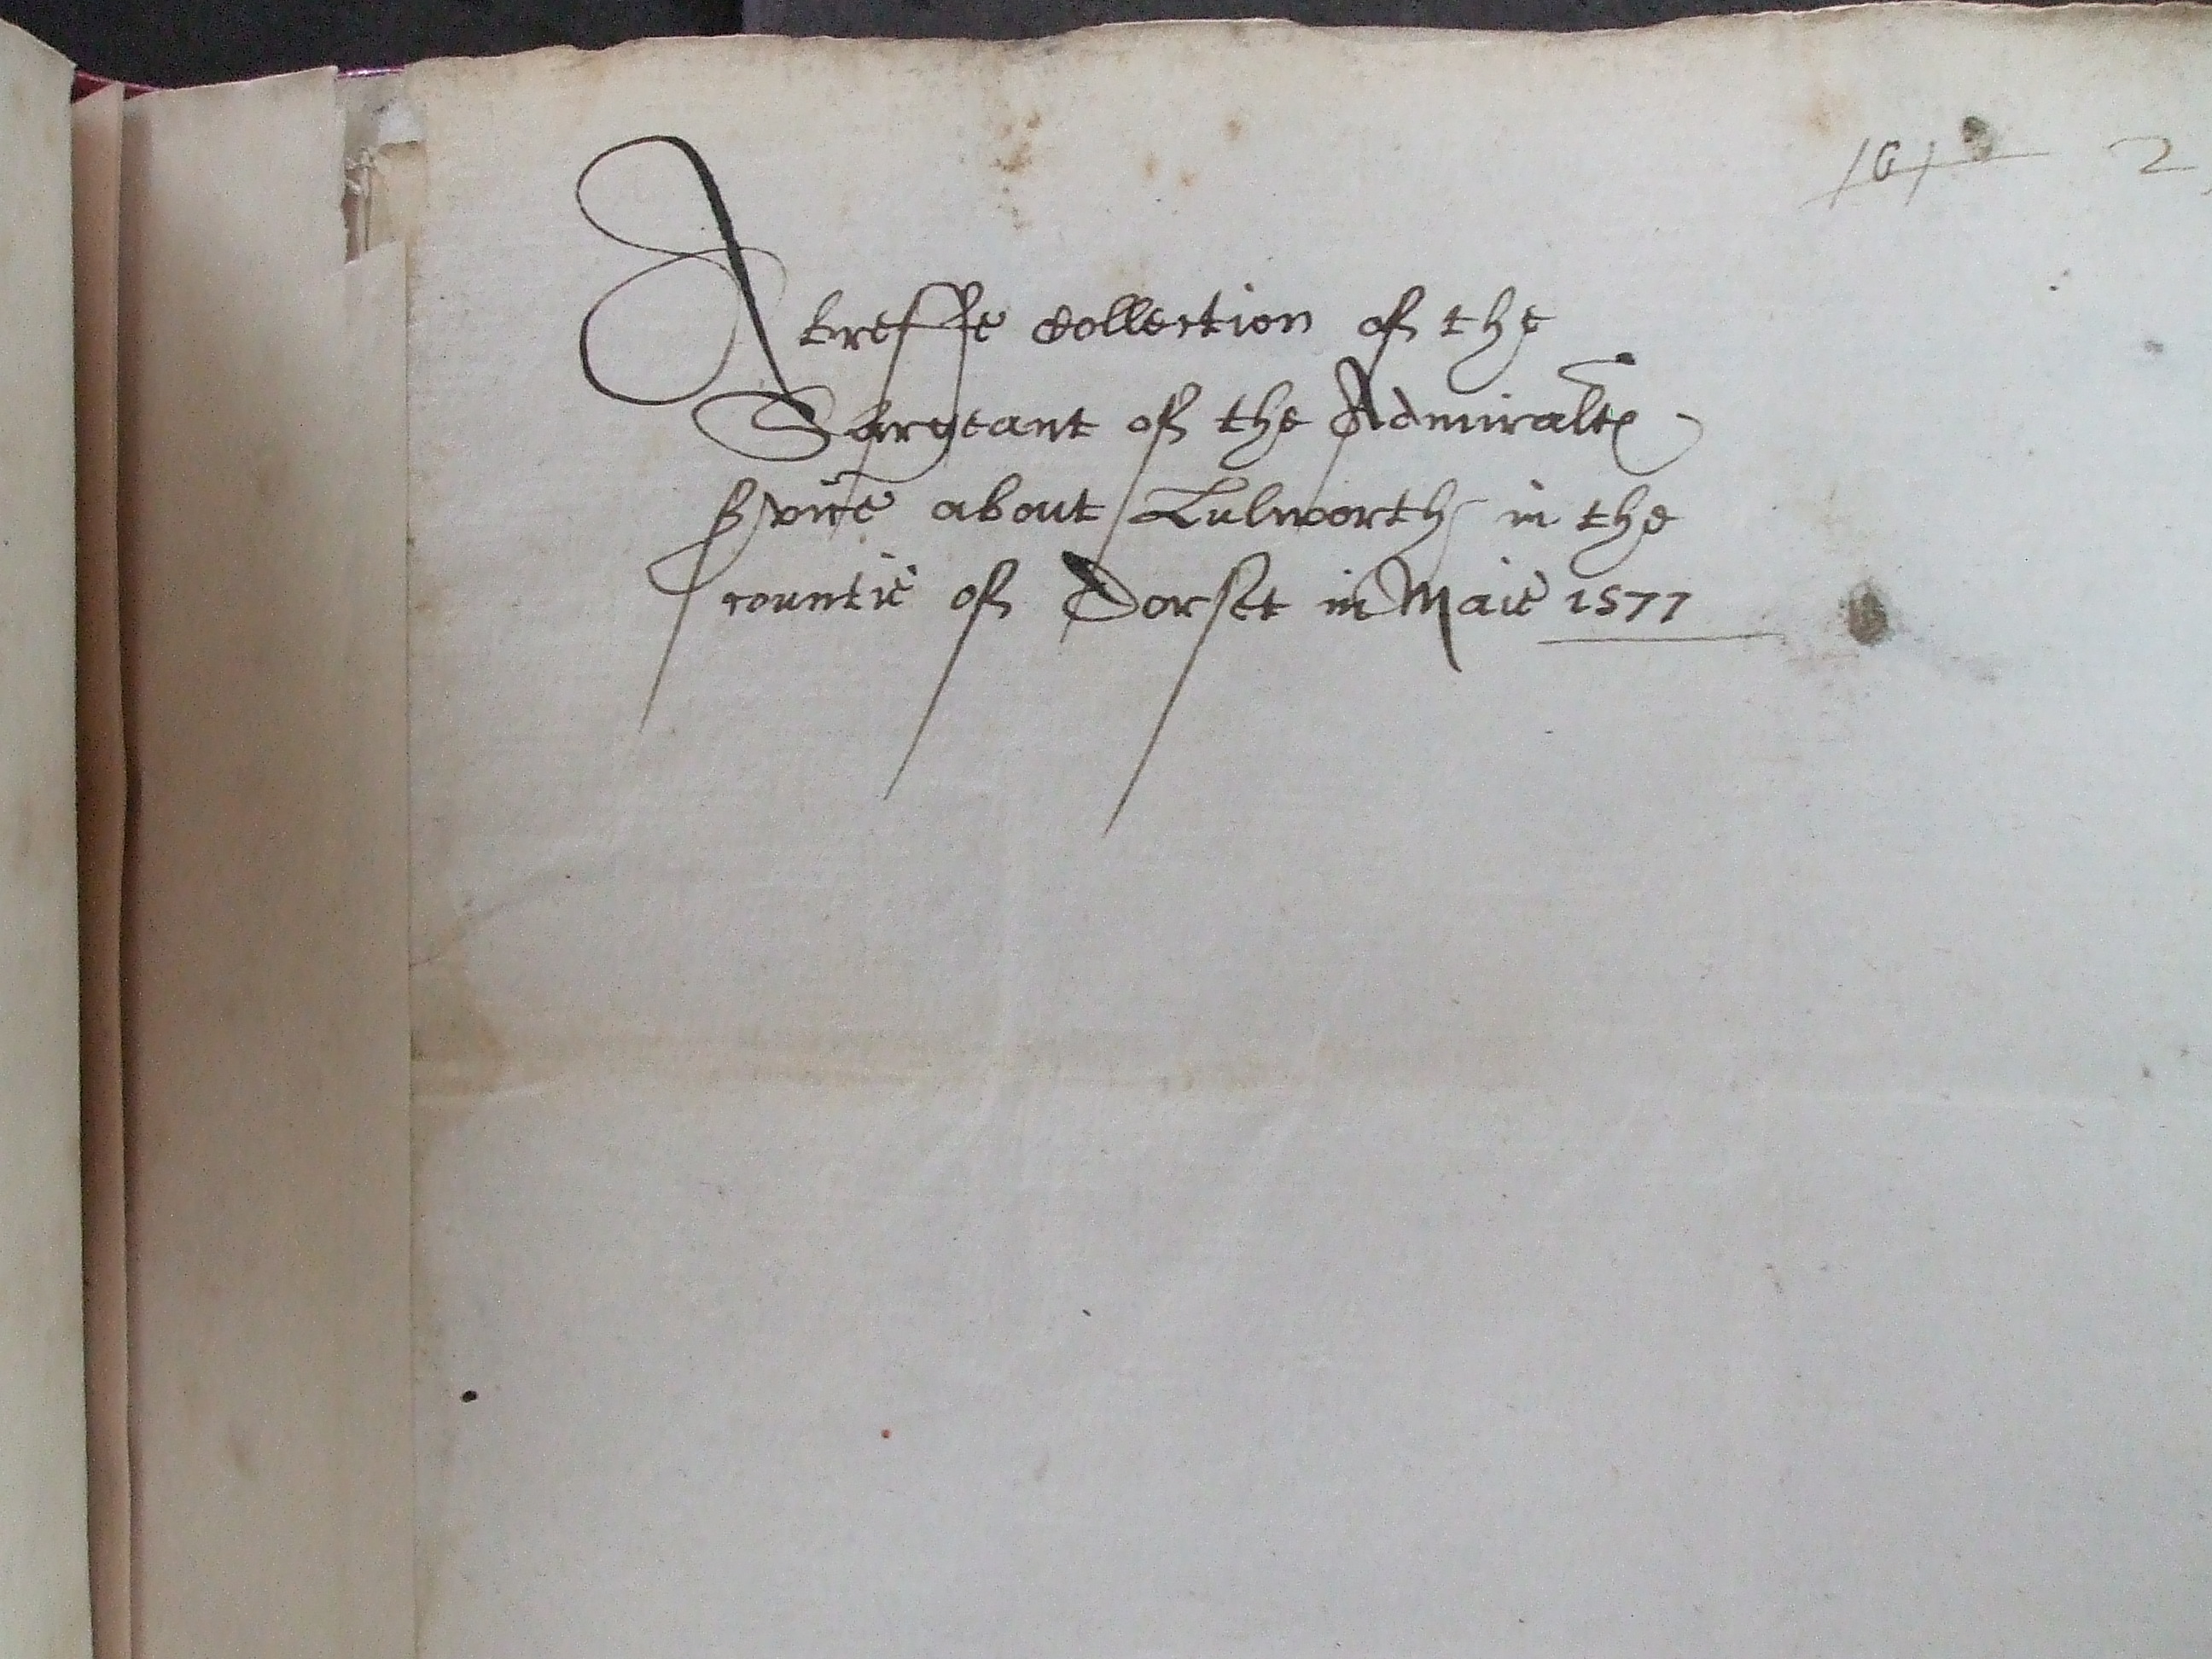 101 2
A breffe Collection of the
Sargeant of the Admiraltes
s͛vice about Lulworth in the
countie of Dorset in Maie 1577